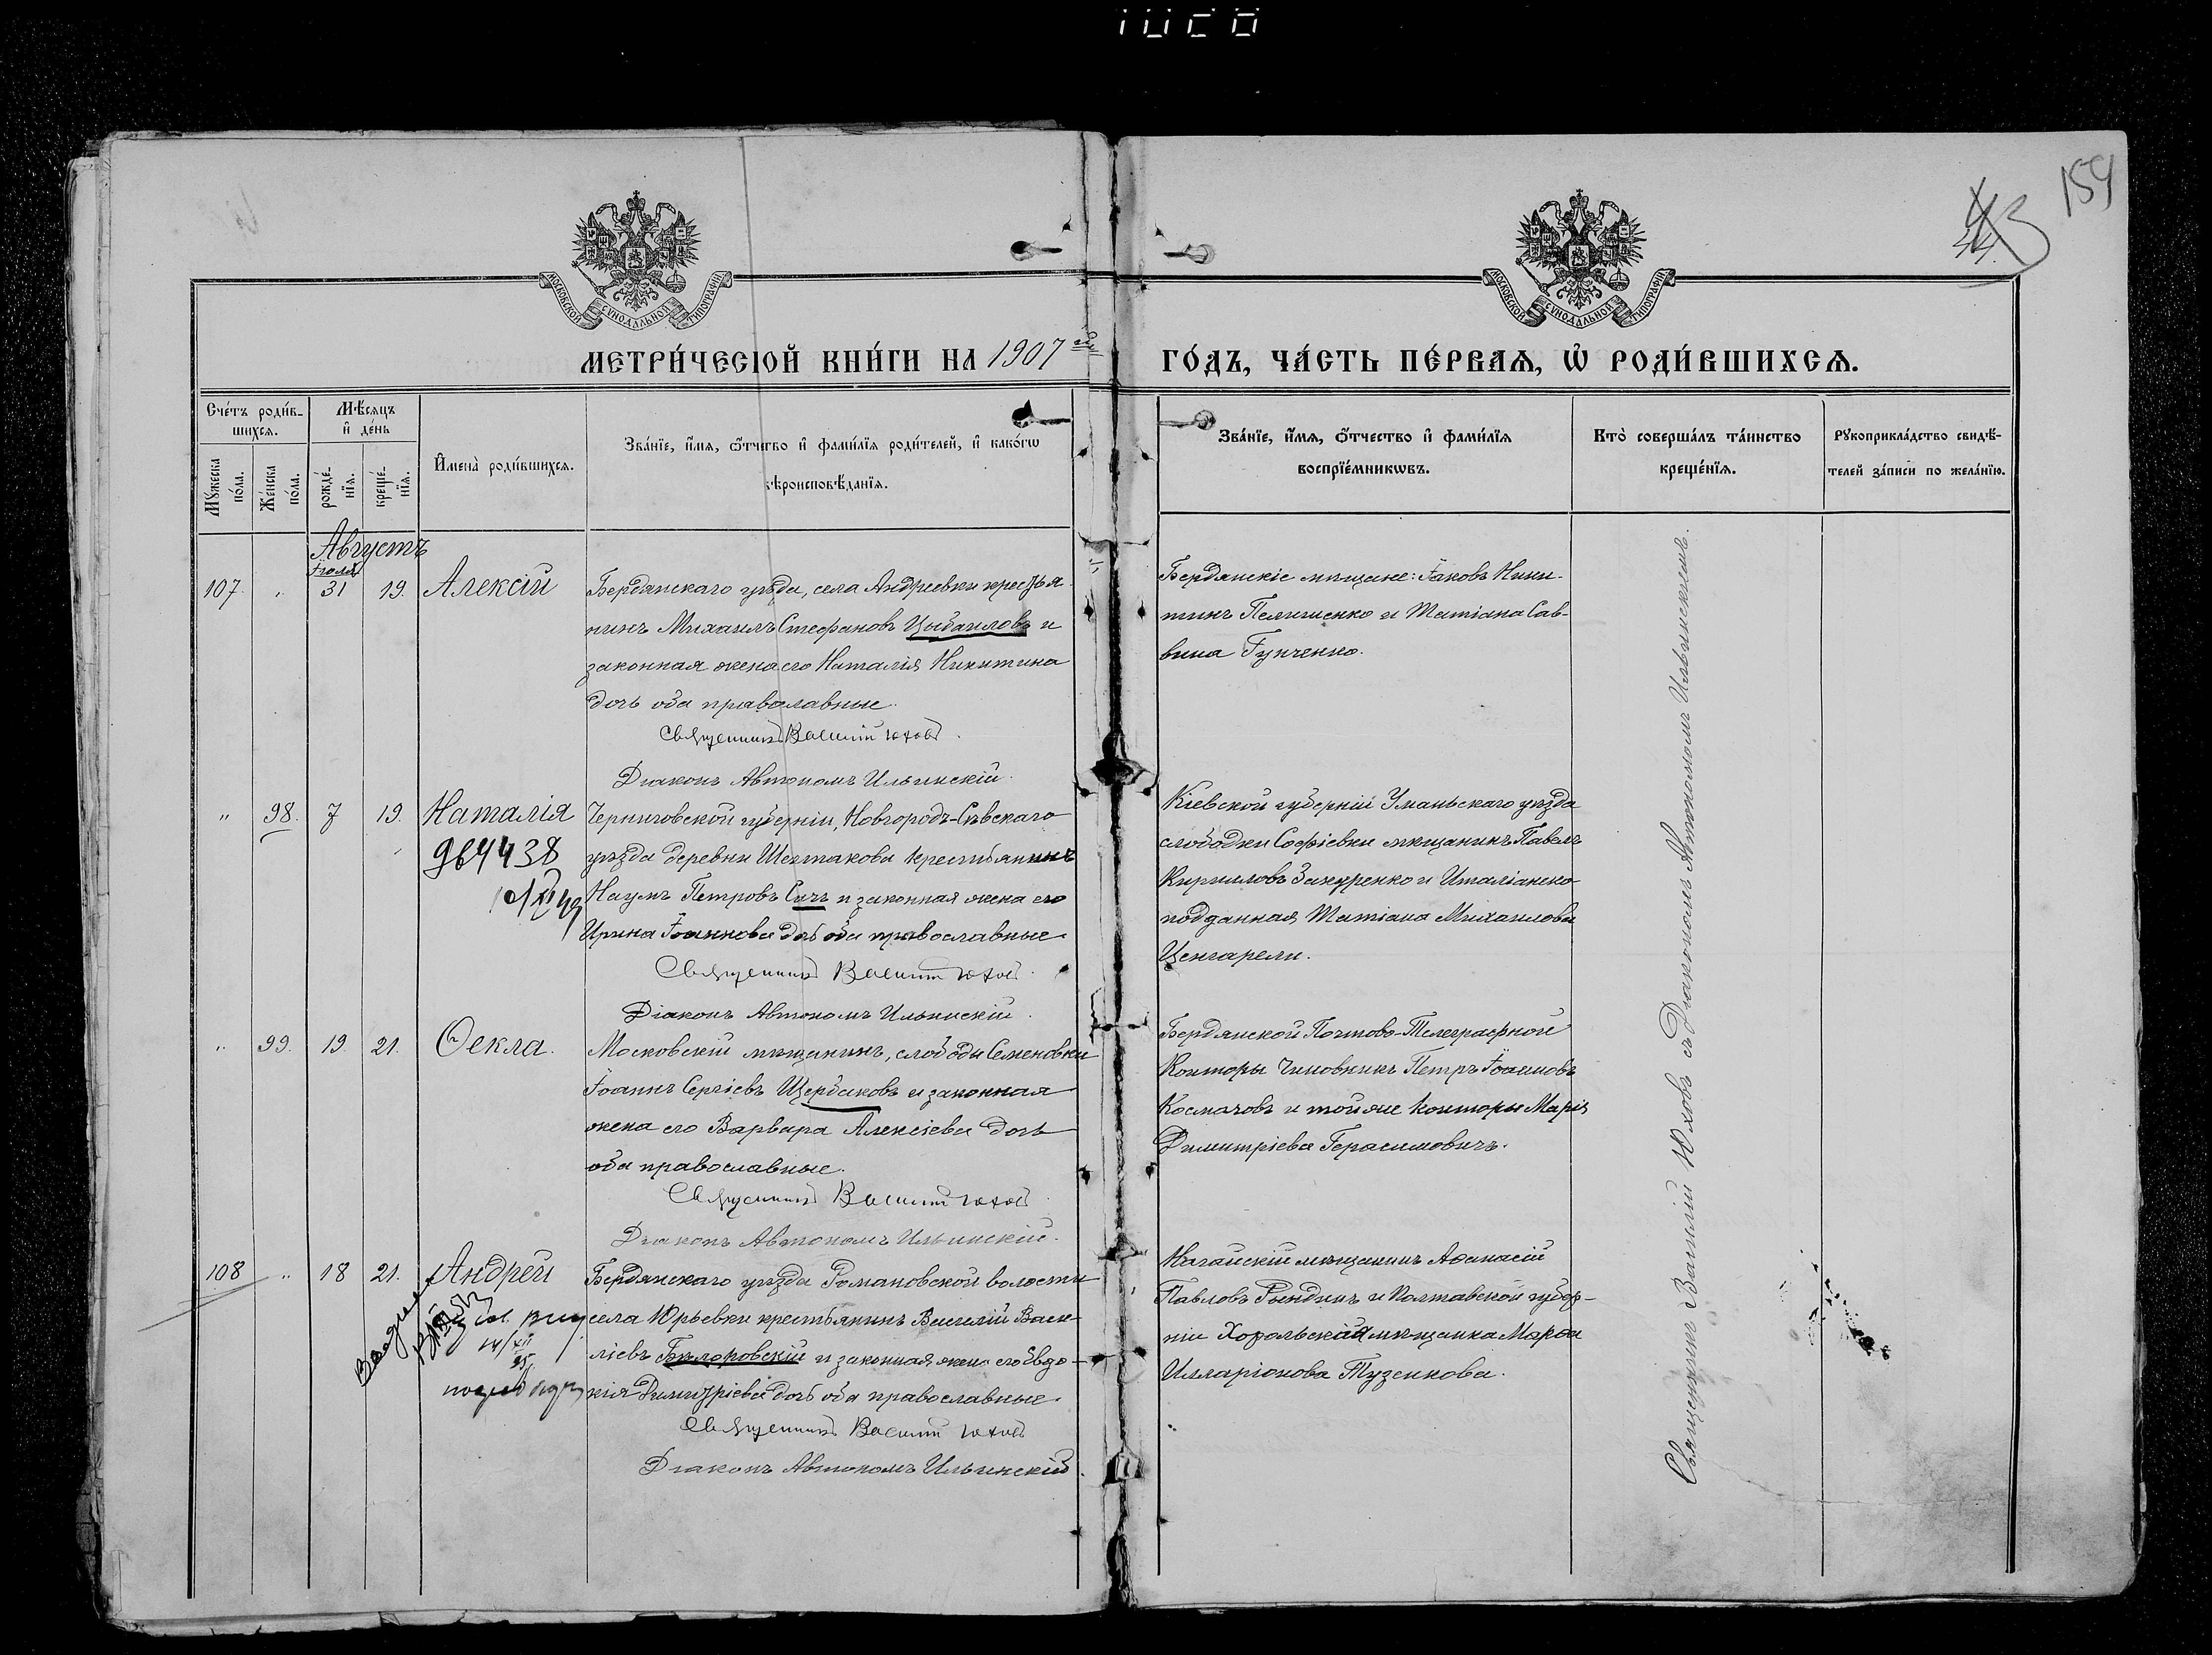 159
МОСКОВСКОЙ СѴНОДАЛЬНОЙ ТИПОГРАФІИ
МОСКОВСКОЙ СѴНОДАЛЬНОЙ ТИПОГРАФІИ
МЕТРИ́ЧЕСІОЙ КНИ́ГИ НА 1907 ГО́ДЪ, ЧА́СТЬ ПЕ́РВАѦ, Ѽ РОДИ́ВШИХСѦ.
Сче́тъ роди́в-
шихсѧ.
Мѣ́сяцъ
и҆ де́нь
Мꙋ́жеска
по́ла.
Же́нска
по́ла.
рожде́-
нїѧ.
креще́-
нїѧ.
И҆мена̀ роди́вшихсѧ.
Зва́нїе, и҆́мѧ, ѻ҆́тчтво и҆ фами́лїѧ роди́телей, и҆ како́гѡ
вѣроисповѣ́данїѧ.
Зва́нїе, и҆́мѧ, ѻ҆́тчество и҆ фами́лїѧ
воспрїе́мникѡвъ.
Кто̀ соверша́лъ та́инство
креще́нїѧ.
Рꙋкоприкла́дство свидѣ́-
телей за́писи по жела́нїю.
Августъ
Іюля
107. " 31 19. Алексій
Бердянскаго уѣзда, села Андреевки крестья-
нинъ Михаилъ Стефановъ Цыбаиловъ и
законная жена его Наталія Никитина
дочь оба православные.
Священникъ Василій Юховъ.
Діаконъ Автономъ Ильинскій.
Бердянскіе мѣщане: Іаковъ Ники-
тинъ Пелишенко и Татіана Сав-
вина Гунченко.
" 98. 7 19. Наталія
964438
Черниговской губерніи, Новгородъ-Сѣвскаго
уѣзда деревни Шептакова крестьянинъ
Наумъ Петровъ Сичъ и законная жена его
Ирина Іоаннова дочь оба православные.
Священникъ Василій Юховъ.
Діаконъ Автономъ Ильинскій.
Кіевской губерніи Уманьскаго уѣзда
слободки Софіевки мѣщанинъ Павелъ
Кирилловъ Закуренко и Италіанско-
подданная Татіана Михаилова
Ценгарели.
" 99. 19 21. Ѳекла.
Московскій мѣщанинъ, слободы Семеновки
Іоаннъ Сергіевъ Щербаковъ и законная
жена его Варвара Алексіева дочь
оба православные.
Священникъ Василій Юховъ
Діаконъ Автономъ Ильинскій.
Бердянской Почтово-Телеграфной
Конторы Чиновникъ Петръ Іоанновъ
Космачовъ и той же конторы Марія
Димитріева Герасимовичъ.
108 " 18 21. Андрей
Бердянскаго уѣзда Романовской волости
села Юрьевки крестьянинъ Василій Васи-
ліевъ Бѣлоровскій и законная жена его Евдо-
кія Димитріева дочь оба православные.
Священникъ Василій Юховъ
Діаконъ Автономъ Ильинскій.
Нагайскій мѣщанинъ Аѳанасій
Павловъ Рындинъ и Полтавской губер-
ніи Хорольская мѣщанка Марѳа
Илларіонова Тузенкова.
Священникъ Василій Юховъ съ Діакономъ Автономомъ Ильинскимъ.